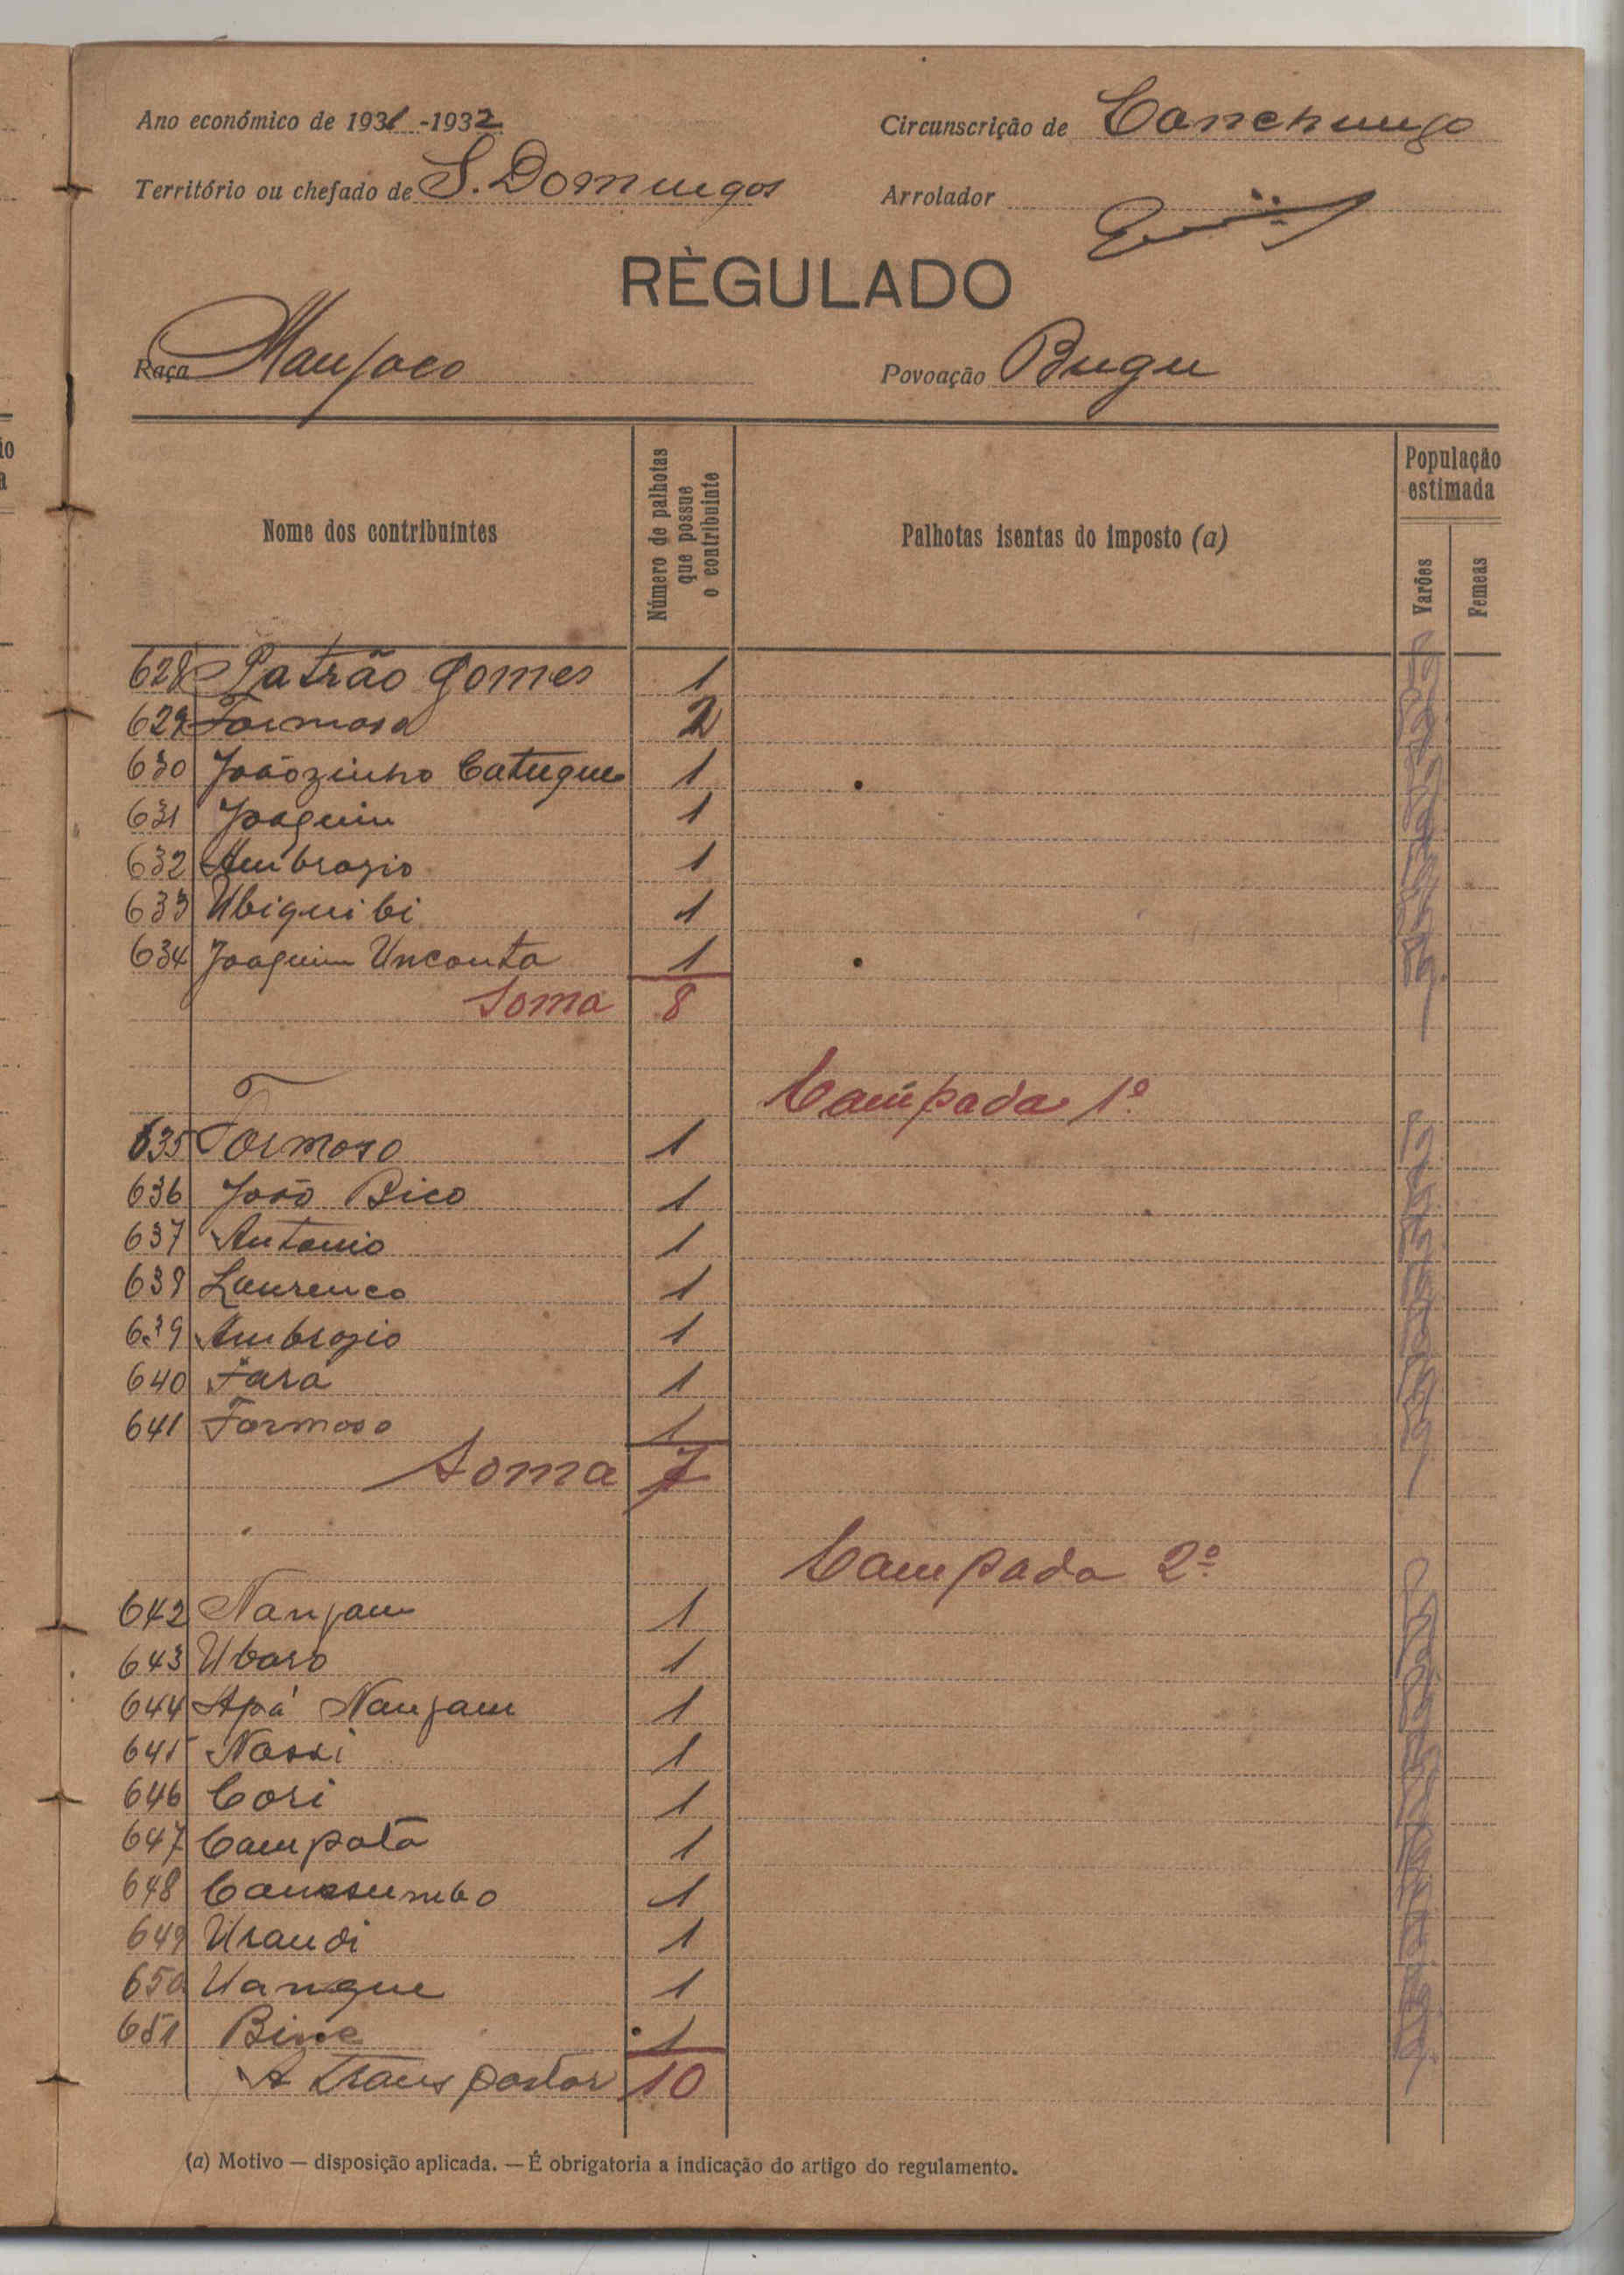 Ano económico de 1931-1932 Circunscrição de Canchungo
Território ou chefado de S. Domingos Arrolador
RÈGULADO
Raça Manjaco Povoação Bugu
Nome dos contribuintes
Número de palhotas
que possue
o contribuinte
Palhotas isentas do imposto (a)
População
estimada
Varões
Femeas
628 Patrão Gomes 1
629 Formosa 2
630 Joãozinho Catuque 1
631 Joaquim 1
632 Ambrozio 1
633 Ubiquibi 1
634 Joaquim Unconta 1
Soma 8
Campada 1º
635 Formoso 1
636 João Bico 1
637 Antonio 1
638 Laurenco 1
639 Ambrozio 1
640 Fara 1
641 Formoso 1
Soma 7
Campada 2º
642 Nanjam 1
643 Ubaro 1
644 Apá Nanjam 1
645 Nassi 1
646 Cori 1
647 Campata 1
648 Canssumbo 1
649 Urandi 1
650 Uangue 1
651 Bine 1
A transportar 10
(a) Motivo — disposição aplicada. — É obrigatoria a indicação do artigo do regulamento.